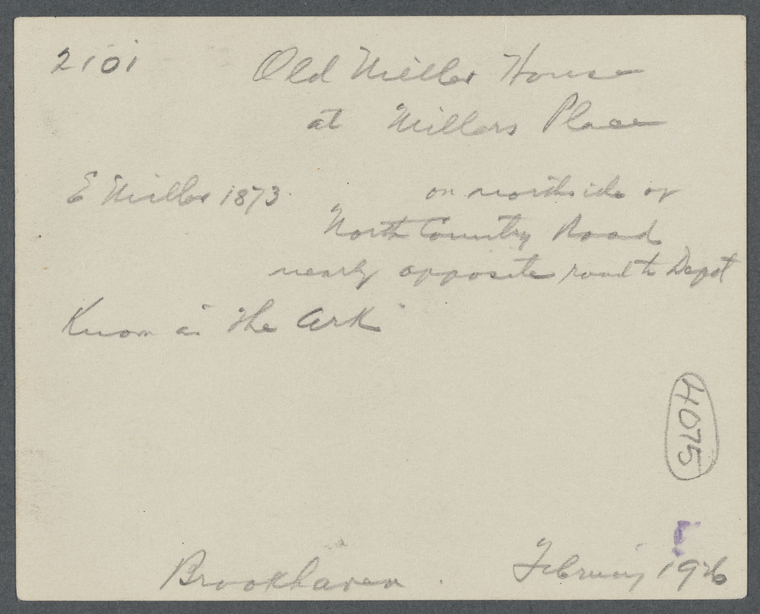 2101
Old Miller House
at Millers Place
E Miller 1873. on north side of
North Country Road
nearly opposite road to Depot
Known as "the Ark"
4075
Brookhaven . February 1926